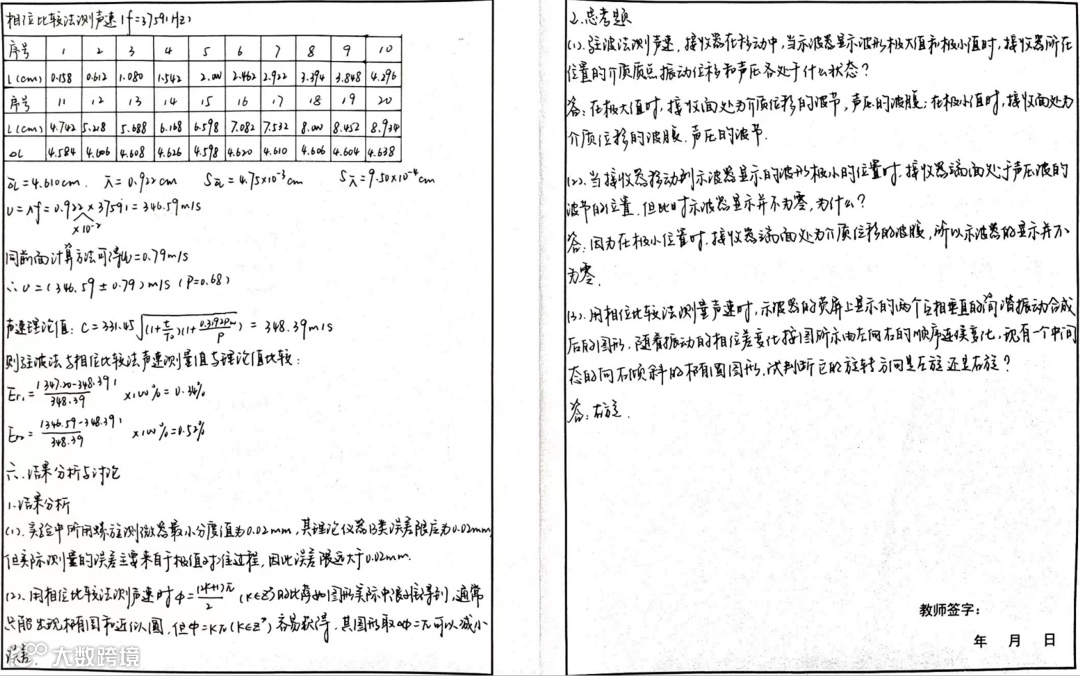 相位比较法测声速 (f=37591Hz)
序号 1 2 3 4 5 6 7 8 9 10
L(cm) 0.158 0.612 1.080 1.542 2.00 2.462 2.922 3.394 3.848 4.296
序号 11 12 13 14 15 16 17 18 19 20
L(cm) 4.742 5.218 5.688 6.168 6.598 7.082 7.532 8.00 8.452 8.934
ΔL 4.584 4.606 4.608 4.626 4.598 4.620 4.610 4.606 4.604 4.638
ΔL=4.610cm. λ=0.922cm S=4.75×10⁻³cm Sλ=9.50×10⁻⁴cm
υ=λf=0.922×37591=346.59m/s
×10⁻²
同前面计算方法可得u=0.79m/s
∴υ=(346.59±0.79)m/s (P=0.68)
声速理论值: C=331.45√(1+t/T₀)(1+0.3192Pw/P) = 348.39m/s
则驻波法与相位比较法声速测量值与理论值比较:
Er₁=|347.20-348.39|/348.39 ×100%=0.34%
Er₂=|346.59-348.39|/348.39 ×100%=0.52%
六.结果分析与讨论
1.结果分析
(1).实验中所用螺旋测微器最小分度值为0.02mm,其理论仪器B类误差限应为0.02mm
但实际测量的误差主要来自于极值对准过程,因此误差限远大于0.02mm.
(2).用相位比较法测声速时φ=(2k+1)π/2 (k∈Z)的比萨如图形实际中很难得到,通常
只能出现椭圆和近似圆,但φ=kπ(k∈Z)容易获得,其图形取Δφ=π可以减小
误差.
大数跨境
2.思考题
(1).驻波法测声速,接收器在移动中,当示波器显示波形极大值和极小值时,接收器所在
位置的介质质点振动位移和声压各处于什么状态?
答:在极大值时,接收面处为介质位移的波节,声压的波腹;在极小值时,接收面处为
介质位移的波腹,声压的波节.
(2).当接收器移动到示波器显示的波形极小的位置时,接收器端面处于声压波的
波节的位置,但此时示波器显示并不为零,为什么?
答:因为在极小位置时,接收器端面处为介质位移的波腹,所以示波器的显示并不
为零.
(3).用相位比较法测量声速时,示波器的荧屏上显示的两个互相垂直的简谐振动合成
后的图形,随着振动的相位差变化按图所示由左向右的顺序连续变化,现有一个中间
态的向右倾斜的椭圆图形,试判断它的旋转方向是左旋还是右旋?
答:右旋.
教师签字:
年 月 日